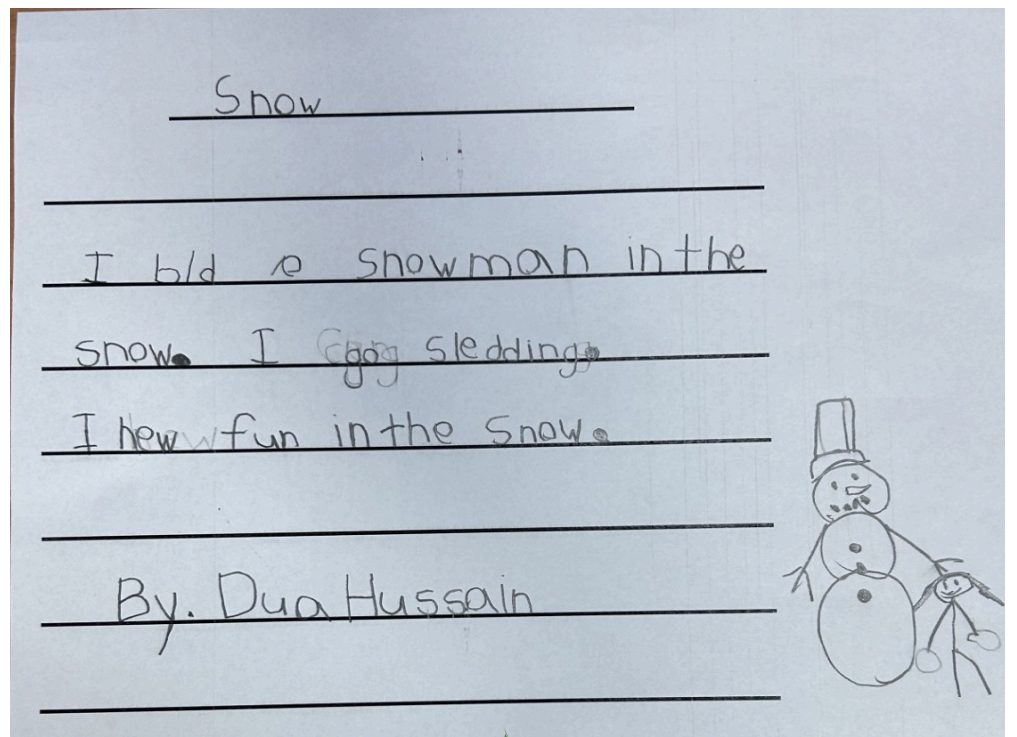 Snow
I bld e snowman in the
snow. I go sledding.
I hew fun in the snow.
By. Dua Hussain